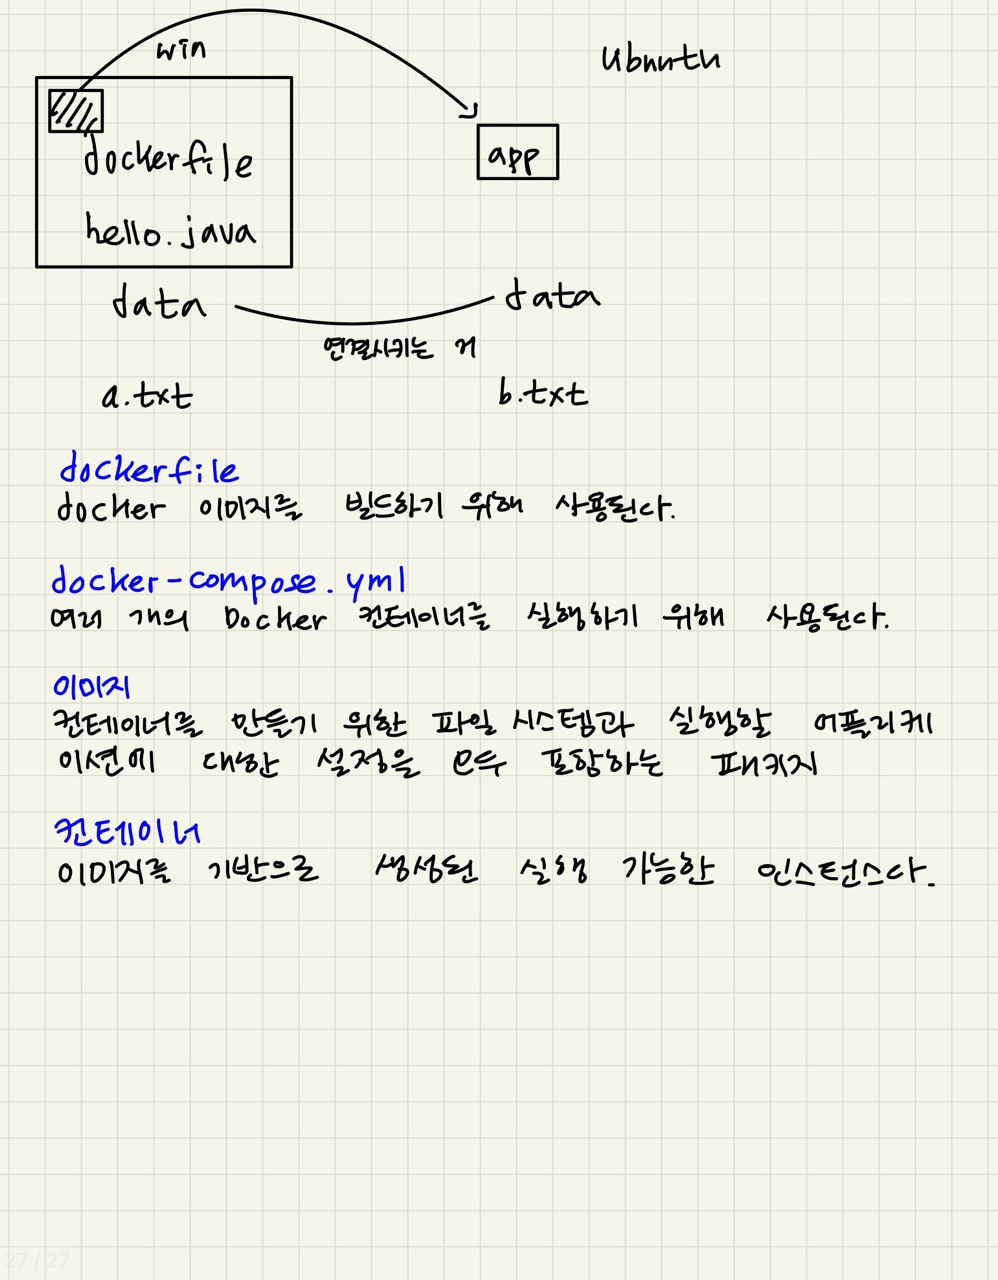 win
Ubnutu
dockerfile
app
hello.java
data
data
연결시키는 거
a.txt
b.txt
dockerfile
docker 이미지를 빌드하기 위해 사용된다.
docker-compose.yml
여러 개의 Docker 컨테이너를 실행하기 위해 사용된다.
이미지
컨테이너를 만들기 위한 파일 시스템과 실행할 어플리케
이션에 대한 설정을 모두 포함하는 패키지
컨테이너
이미지를 기반으로 생성된 실행 가능한 인스턴스다.
27 / 27